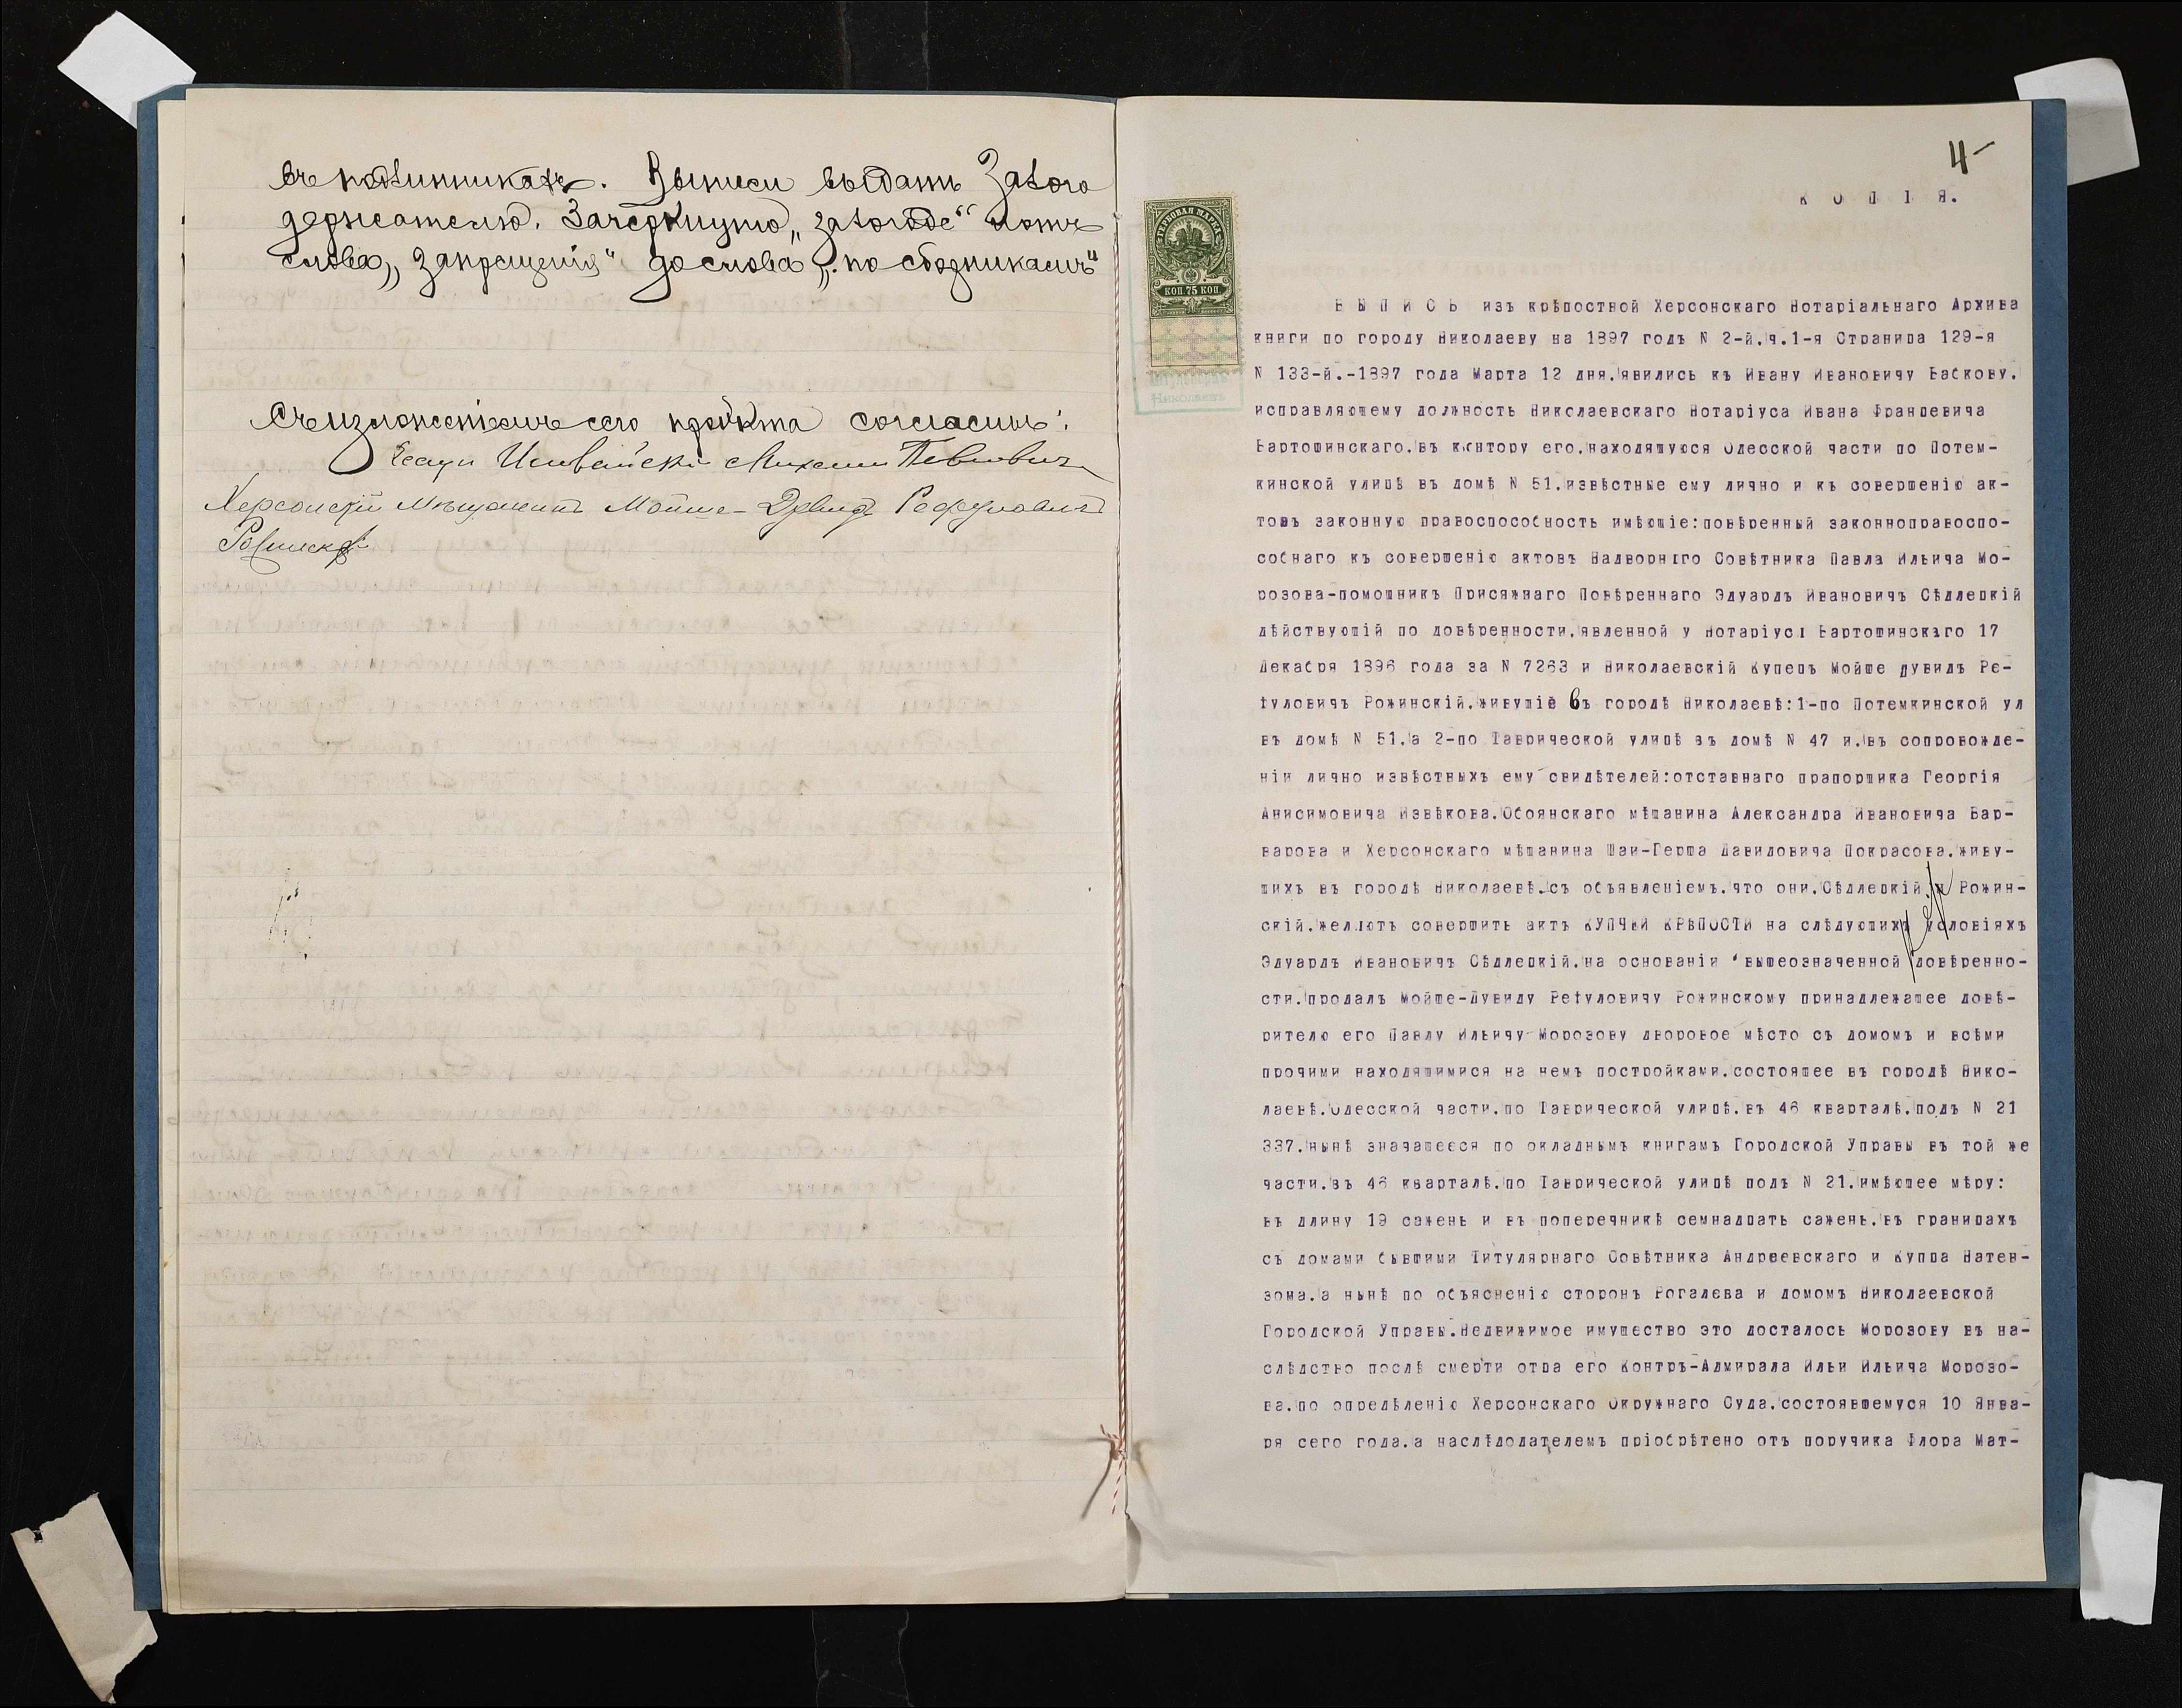 въ подлинникахъ. Выписи выдать Залого
держателю. Зачеркнуто „залогоде“ и отъ
слова „запрещенія“ до слова „по сборникамъ“
Съ изложеніемъ сего проэкта согласны:
Михаилъ Павловичъ
Херсонскій Мѣщанинъ Мойше-Дувидъ Рефуловичъ
Рожинскій
4
КОПІЯ.
ГЕРБОВАЯ МАРКА
КОП. 75 КОП.
Николаевъ
ВЫПИСЬ изъ крѣпостной Херсонскаго Нотаріальнаго Архива
книги по городу Николаеву на 1897 годъ N 2-й,ч.1-я Страница 129-я
N 133-й.-1897 года Марта 12 дня,явились къ Ивану Ивановичу Баскову,
исправляющему должность Николаевскаго Нотаріуса Ивана Францевича
Бартошинскаго,въ контору его,находящуюся Одесской части по Потем-
кинской улицѣ въ домѣ N 51,извѣстные ему лично и къ совершенію ак-
товъ законную правоспособность имѣющіе:повѣренный законноправоспо-
собнаго къ совершенію актовъ Надворнаго Совѣтника Павла Ильича Мо-
розова-помощникъ Присяжнаго Повѣреннаго Эдуардъ Ивановичъ Сѣдлецкій
дѣйствующій по довѣренности,явленной у Нотаріуса Бартошинскаго 17
Декабря 1896 года за N 7263 и Николаевскій Купецъ Мойше Дувидъ Ре-
фуловичъ Рожинскій,живущіе въ городѣ Николаевѣ:1-по Потемкинской ул
въ домѣ N 51,а 2-по Таврической улицѣ въ домѣ N 47 и,въ сопровожде-
ніи лично извѣстныхъ ему свидѣтелей:отставнаго прапорщика Георгія
Анисимовича Извѣкова,Обоянскаго мѣщанина Александра Ивановича Вар-
варова и Херсонскаго мѣщанина Шаи-Герша Давидовича Покрасова,живу-
щихъ въ городѣ Николаевѣ,съ объявленіемъ,что они,Сѣдлецкій и Рожин-
скій,желаютъ совершить актъ КУПЧЕЙ КРѢПОСТИ на слѣдующихъ условіяхъ
Эдуардъ Ивановичъ Сѣдлецкій,на основаніи вышеозначенной довѣренно-
сти,продалъ Мойше-Дувиду Рефуловичу Рожинскому принадлежащее довѣ-
рителю его Павлу Ильичу Морозову дворовое мѣсто съ домомъ и всѣми
прочими находящимися на немъ постройками,состоящее въ городѣ Нико-
лаевѣ,Одесской части,по Таврической улицѣ,въ 46 кварталѣ,подъ N 21
337,нынѣ значащееся по окладнымъ книгамъ Городской Управы въ той же
части,въ 46 кварталѣ,по Таврической улицѣ подъ N 21,имѣющее мѣру:
въ длину 19 сажень и въ поперечникѣ семнадцать сажень,въ границахъ
съ домами бывшими Титулярнаго Совѣтника Андреевскаго и Купца Натен-
зома,а нынѣ по объясненію сторонъ Рогалева и домомъ Николаевской
Городской Управы.Недвижимое имущество это досталось Морозову въ на-
слѣдство послѣ смерти отца его Контръ-Адмирала Ильи Ильича Морозо-
ва,по опредѣленію Херсонскаго Окружнаго Суда,состоявшемуся 10 Янва-
ря сего года,а наслѣдодателемъ пріобрѣтено отъ поручика Флора Мат-